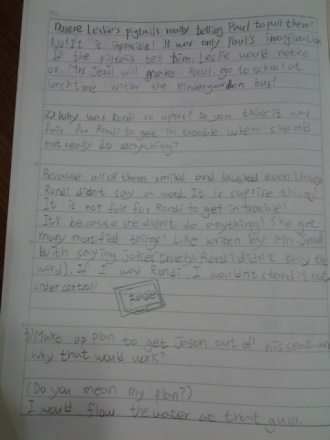 1) Were Leslie's pigtails really telling Paul to pull them?
No! It is impossible! It was only Paul's imagination
If the pigtails tell him, Leslie would notice
or Mrs. Jewl will make Paul go to school at
lunchtime with the kindergarden bus!
2) Why was Rondi so upset? Do you think it was
fair for Rondi to get in trouble when she did
not really do anything?
Because all of them smiled and laughed even though
Rondi didn't say a word. It is suprise thing!
It is not fair for Rondi to get in trouble!
It's because she didn't do anything! She get
many mortified things! Like writen by Mrs. Jewl
with saying joke
Rondi didn't say the
word). If I was Rondi, I wouldn't stand it out
under control!
Rondi
3) Make up plan to get Jason out of his seat and
why that would work?
(Do you mean my plan?)
I would flow the water at that gum.